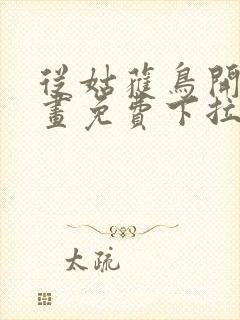 從姑獲鳥開
畫免費下拉
太疏